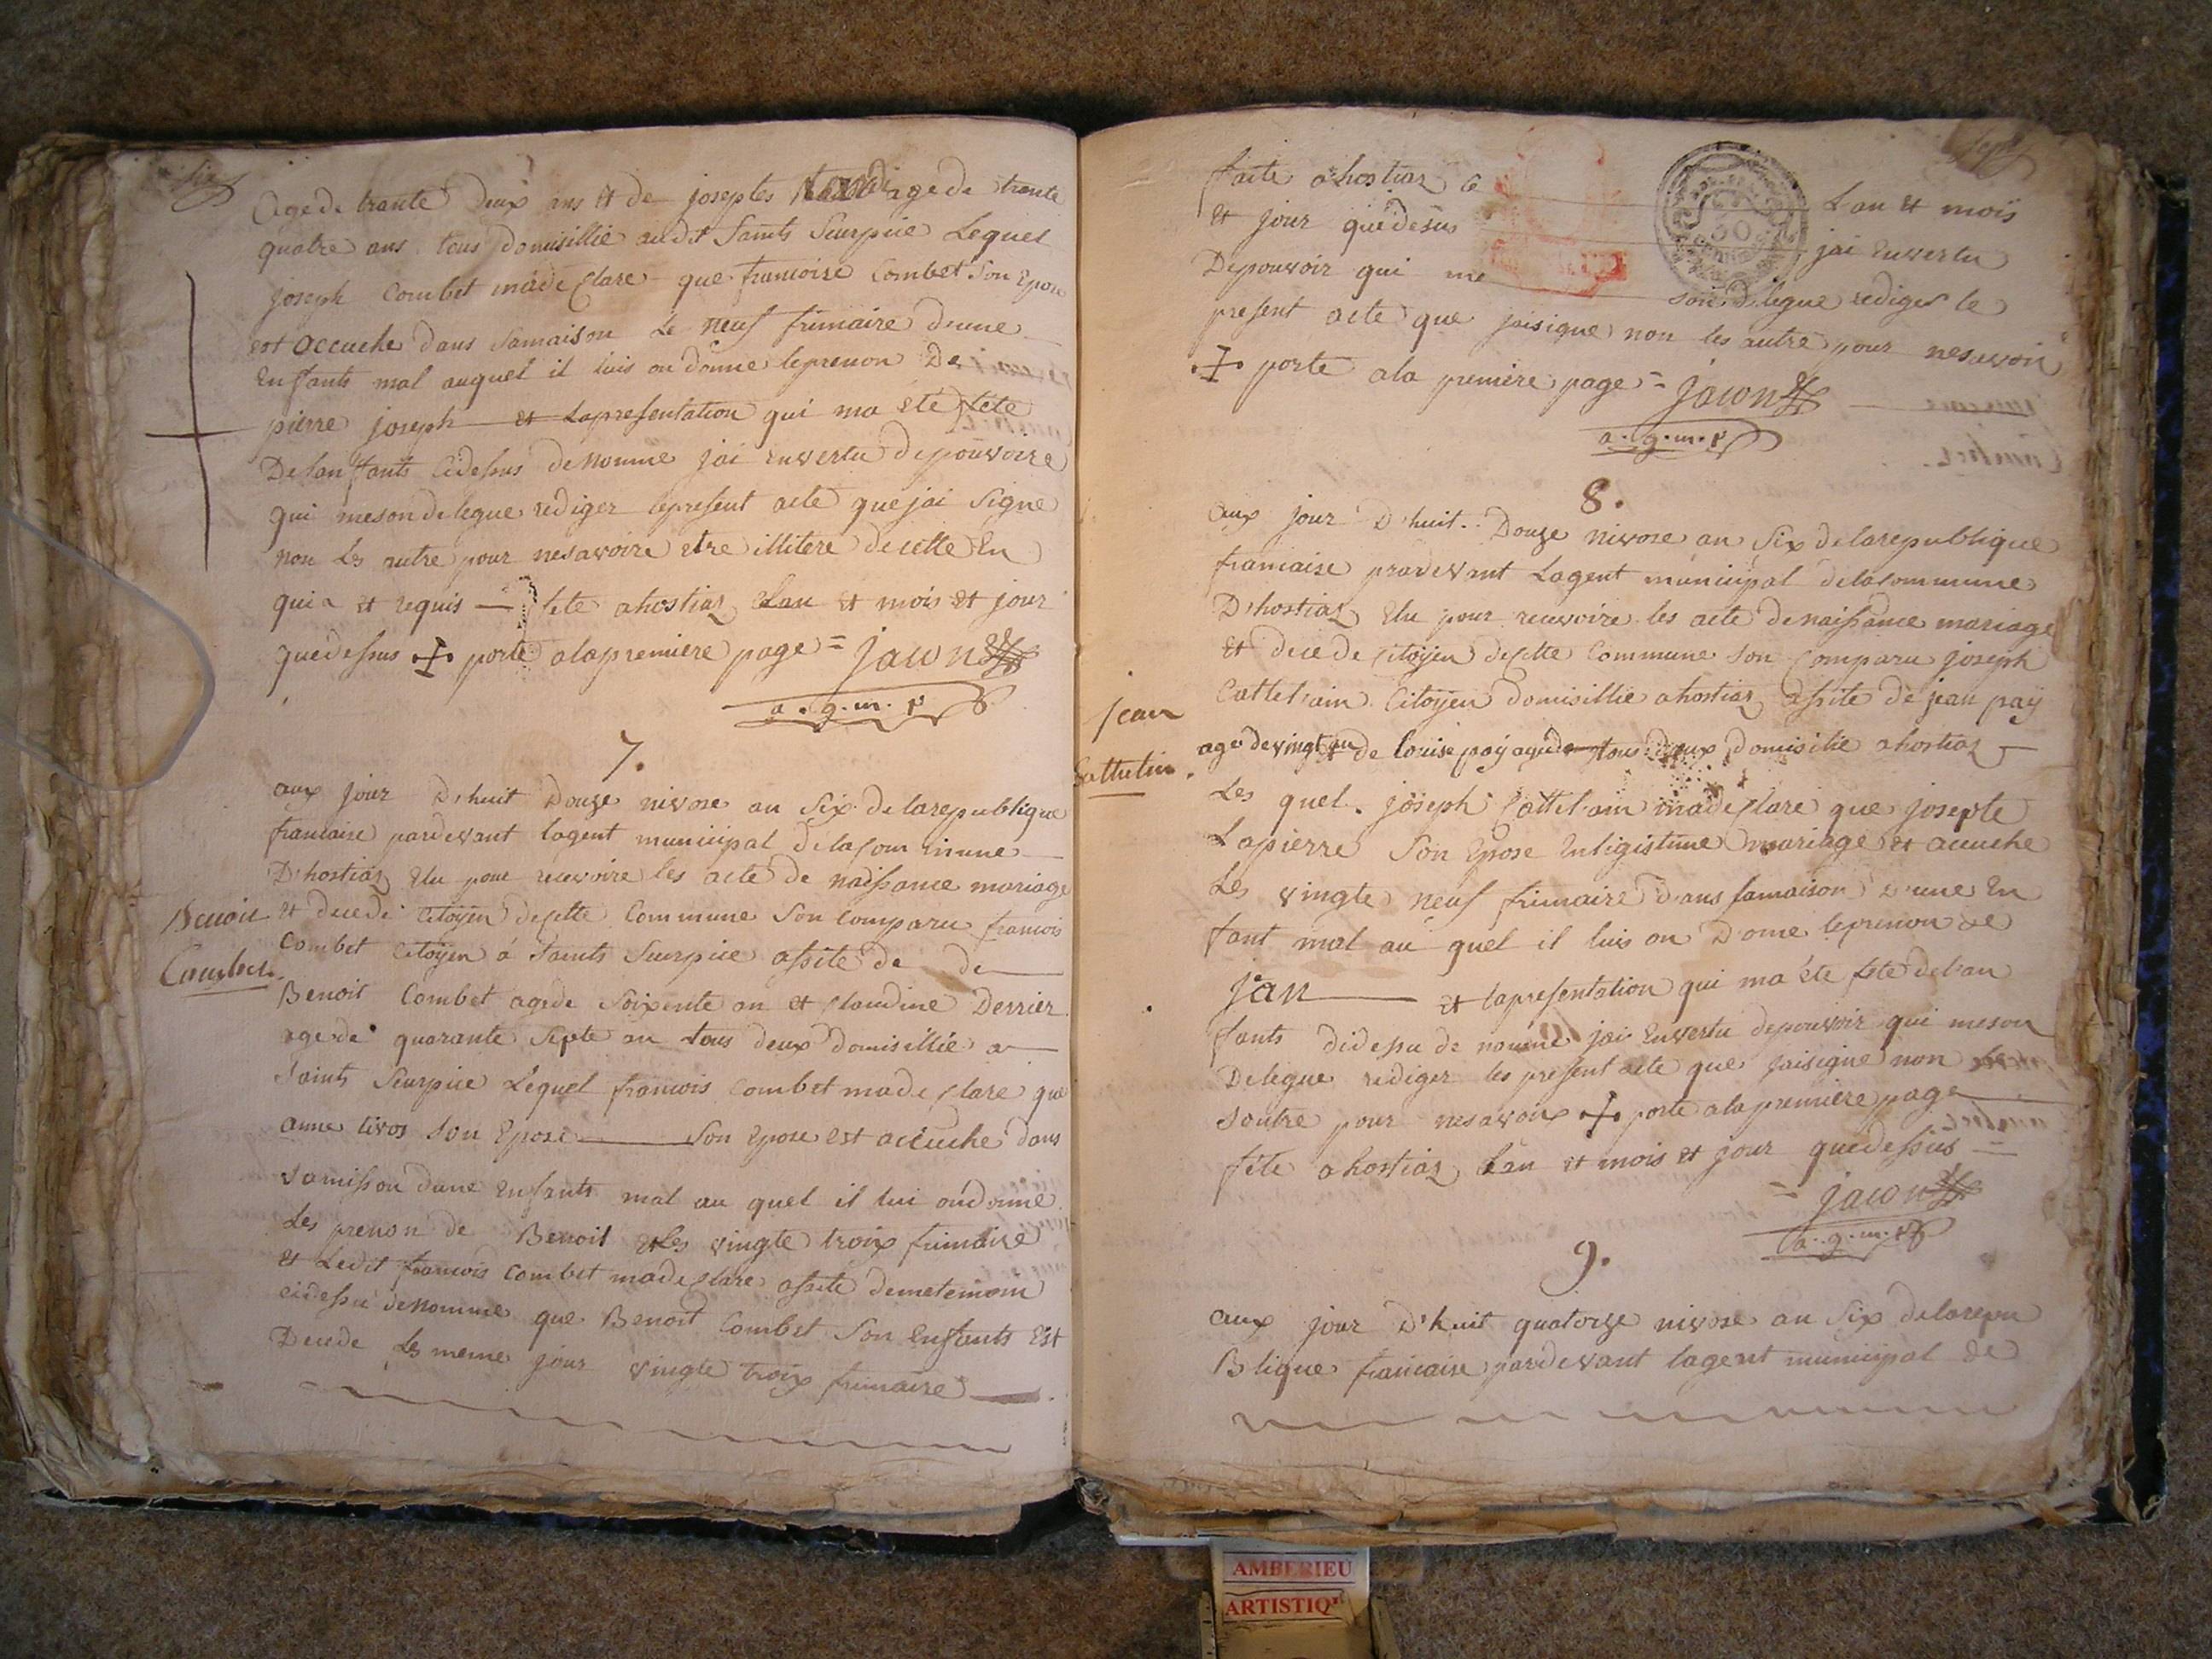 six
agede trante deux ans et de josephtes agede trante
quatre ans tous domisillie audit Saints Surpice Lequel
joseph Combet made clare que francoise Combet Son Epou
est accuche dans samaison Le neuf frimaire dune
Enfants mal auquel il luis on donne leprenon De
pierre joseph et Lapresentation qui ma eté fete
Delanfants Cidesus denomme jai Envertu depouvoire
qui meson delegue rediger lepresent acte quejai Signe
non Les autre pour nesavoire etre illitere decette En
qui a et requis fete ahostiaz Lan et mois et jour
quedessus porte alapremiere page = jacon
a. g. m. p
7.
aux jour D'huit Douze nivose an Six delarepublique
francaise pardevant lagent municipal delacommune
D'hostiaz Elu pour recevoire les acte de naissance mariage
et decede Citoyen decette Commune Son comparu francois
Combet Citoyen á Saints Surpice assite de de
Benoit Combet agede Soixente an et Claudine Derrier
agede quarante Septe an tous deux domisillié a
Saints Surpice Lequel francois Combet made clare que
anne tivos Son Epose Son Epose est accuche dans
Samisson dune Enfants mal au quel il lui ondonne
Les prenon de Benoit Les vingte troix frimaire
et Ledit francois Combet made clare assite demetemoin
cidessu denomme que Benoit Combet Son Enfants Est
Decede Les meme jour vingte troix frimaire
Benoit
Combet
Sept
faite ahostiaz Le Lan et mois
et jour quedesus jai Envertu
Depouvoir qui me son delegue rediger le
present acte que jaisigne non les autre pour nesavoir
porte ala premiere page = jacon
a. g. m. p
8.
aux jour D'huit Douze nivose an Six delarepublique
francaise pardevant Lagent municipal delacommune
D'hostiaz Elu pour recevoire les acte denaissance mariage
et decede Citoyen decette Commune Son Comparu joseph
Cattelain Citoyen domisillie ahostiaz assite de jean pay
age devingt an de Louise pay agede tous deux domisilie ahostiaz
Les quel joseph Cattelain made clare que josepte
Lapierre Son Epose Enligistime mariage et acuche
Les vingte neuf frimaire dans samaison d'une En
fant mal au quel il luis on Done leprenon de
jan et lapresentation qui ma ete fete delan
fants didessu de nomme jai Envertu depouvoir qui meson
Delegue rediger les present acte que jaisigne non Les
autre pour nesavoir porte alapremiere page
féte ahostiaz Lan et mois et jour quedessus =
= jacon
a. g. m. p
jean
Cattelin.
9.
aux jour D'huit quatorze nivose an Six delarepu
Blique francaise pardevant lagent municipal de
30
AMBERIEU
ARTISTIQ